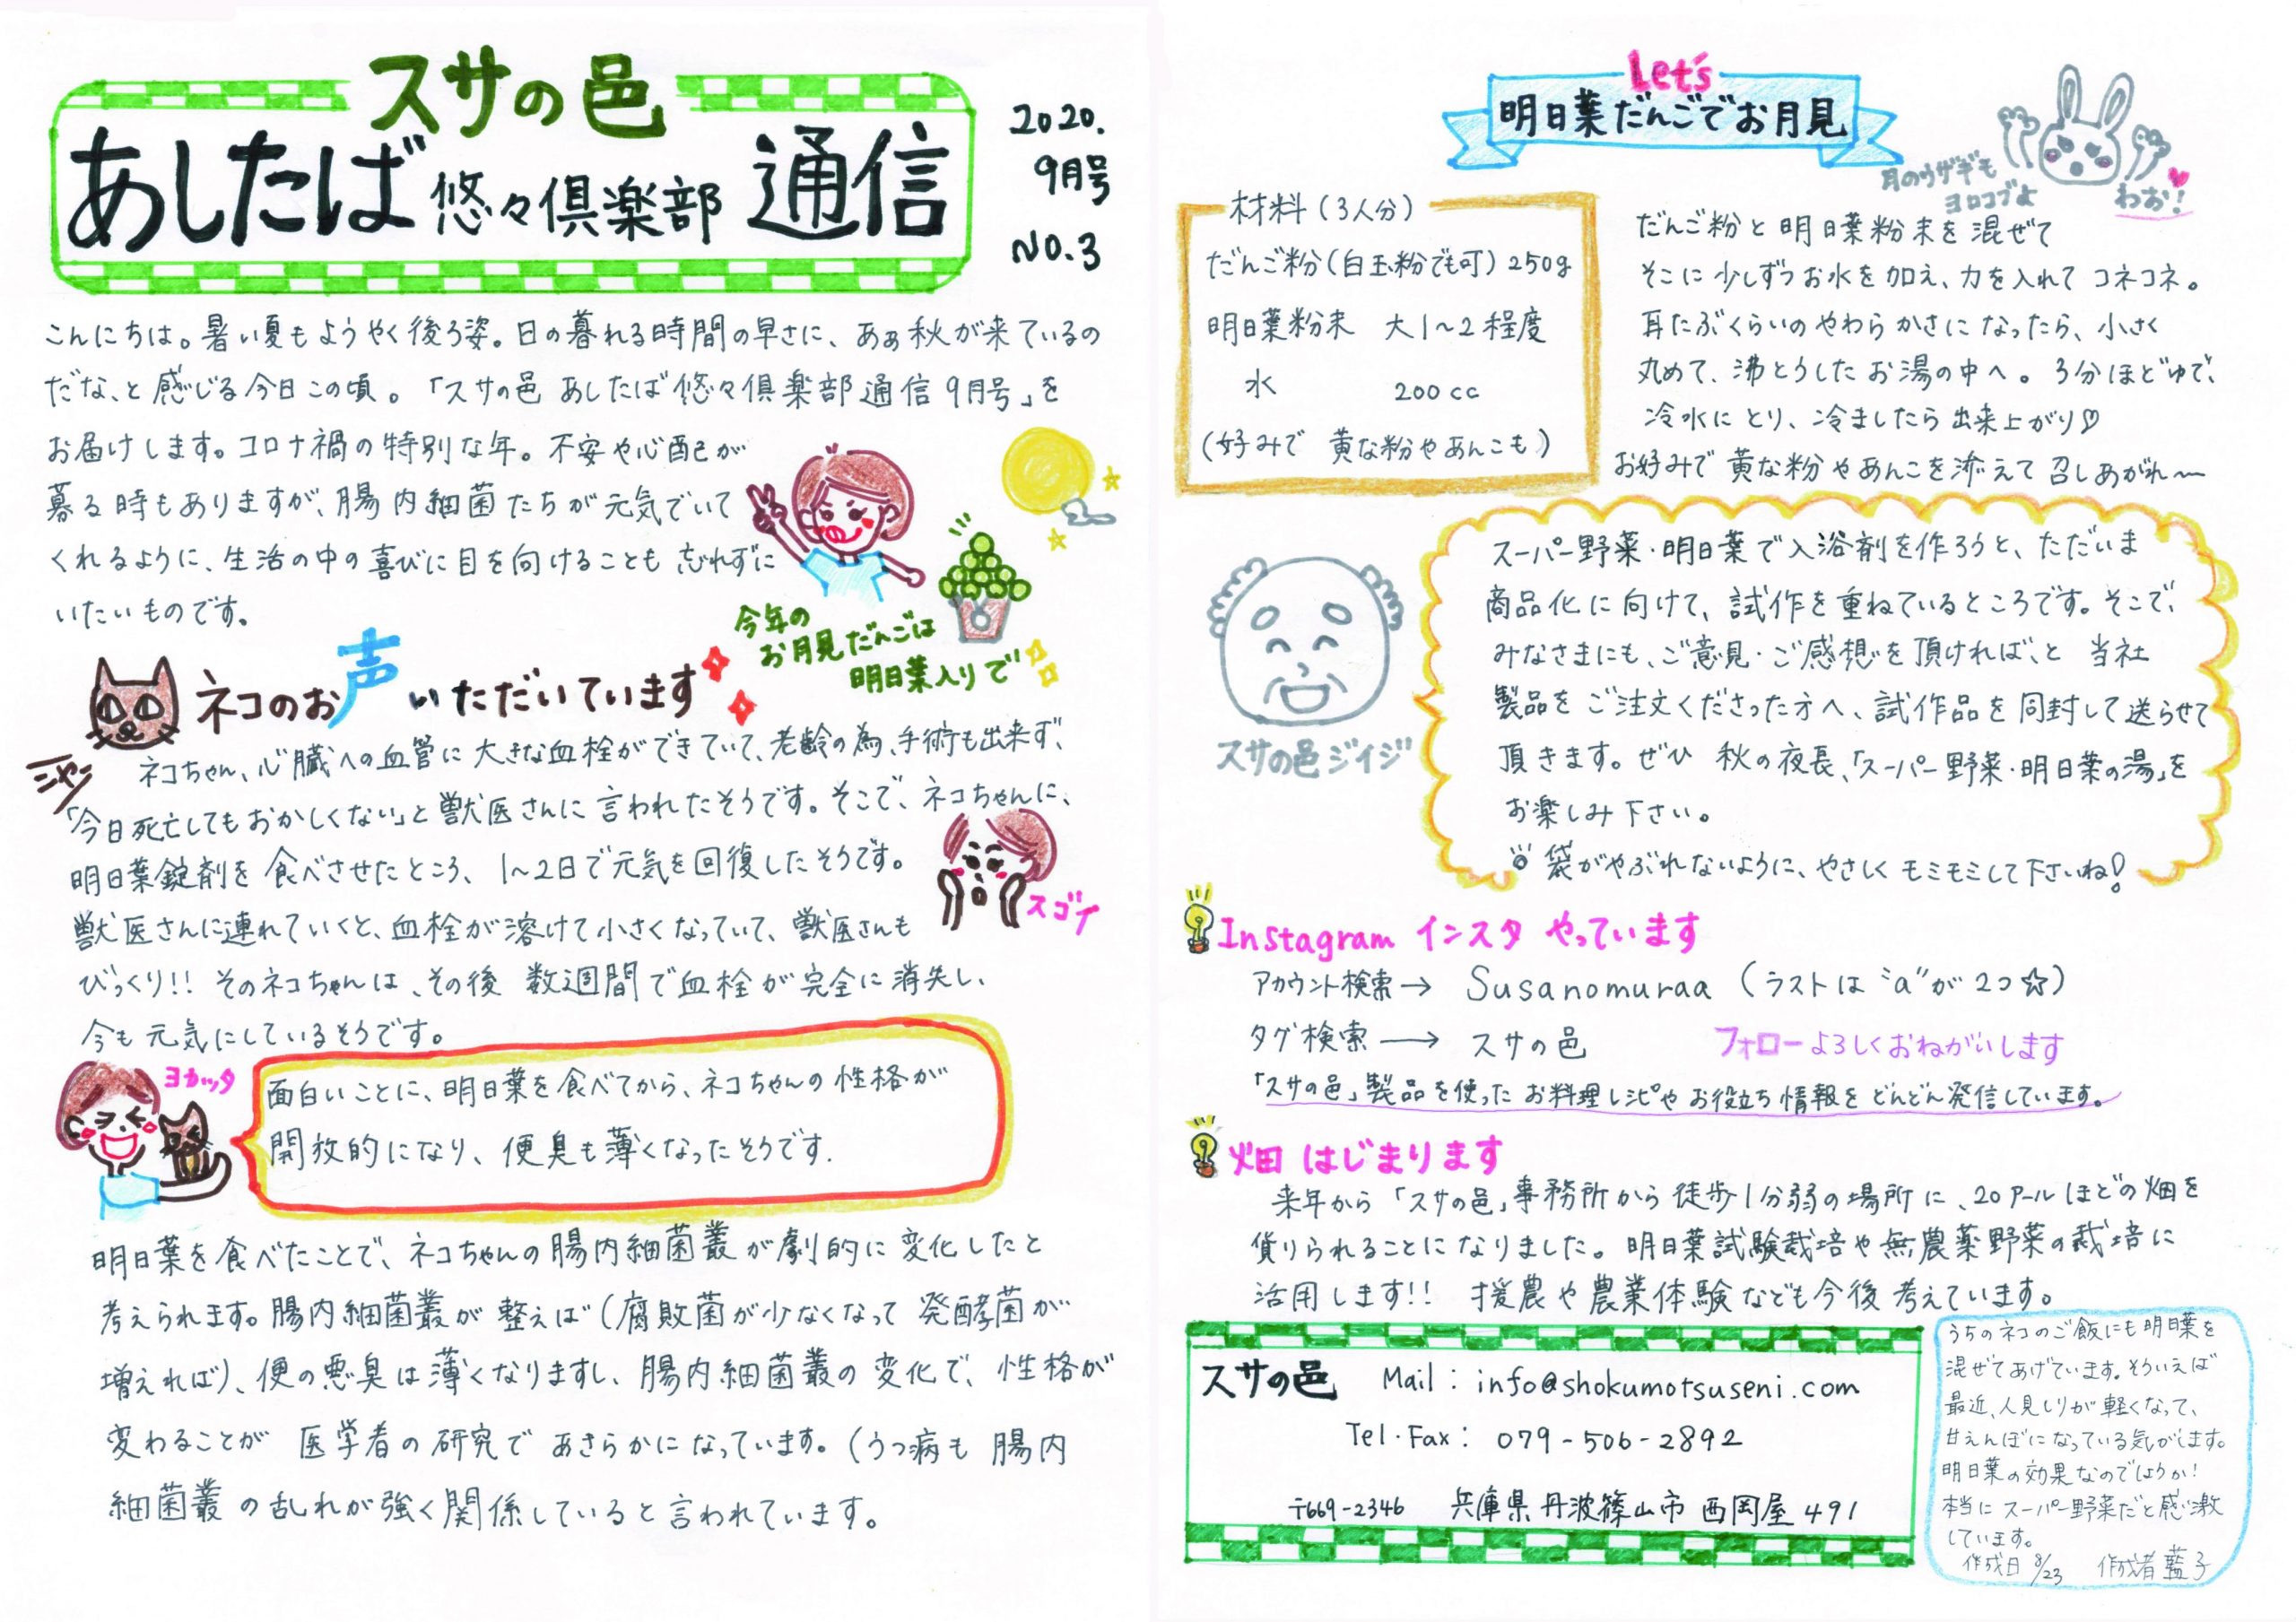 スサの邑
あしたば悠々倶楽部 通信
2020.
9月号
NO.3
こんにちは。暑い夏もようやく後ろ姿。日の暮れる時間の早さに、あぁ秋が来ているの
だな、と感じる今日この頃。「スサの邑 あしたば悠々倶楽部通信9月号」を
お届けします。コロナ禍の特別な年。不安や心配が
募る時もありますが、腸内細菌たちが元気でいて
くれるように、生活の中の喜びに目を向けることも忘れずに
いたいものです。
今年の
お月見だんごは
明日葉入りで
ネコのお声いただいています
ニャン
ネコちゃん、心臓への血管に大きな血栓ができていて、老齢の為、手術も出来ず、
「今日死亡してもおかしくない」と獣医さんに言われたそうです。そこで、ネコちゃんに、
明日葉錠剤を食べさせたところ、1〜2日で元気を回復したそうです。
獣医さんに連れていくと、血栓が溶けて小さくなっていて、獣医さんも
スゴイ
びっくり!! そのネコちゃんは、その後 数週間で血栓が完全に消失し、
今も元気にしているそうです。
ヨカッタ
面白いことに、明日葉を食べてから、ネコちゃんの性格が
開放的になり、便臭も薄くなったそうです.
明日葉を食べたことで、ネコちゃんの腸内細菌叢が劇的に変化したと
考えられます。腸内細菌叢が整えば(腐敗菌が少なくなって発酵菌が
増えれば)、便の悪臭は薄くなりますし、腸内細菌叢の変化で、性格が
変わることが医学者の研究であきらかになっています。(うつ病も腸内
細菌叢の乱れが強く関係していると言われています。
Let's
明日葉だんごでお月見
月のウサギも
ヨロコブよ
わお!
材料(3人分)
だんご粉(白玉粉でも可) 250g
明日葉粉末 大1〜2程度
水 200cc
(好みで 黄な粉やあんこも)
だんご粉と明日葉粉末を混ぜて
そこに少しずつお水を加え、力を入れてコネコネ。
耳たぶくらいのやわらかさになったら、小さく
丸めて、沸とうしたお湯の中へ。3分ほどゆで、
冷水にとり、冷ましたら出来上がり♡
お好みで黄な粉やあんこを添えて召しあがれ〜
スサの邑ジイジ
スーパー野菜・明日葉で入浴剤を作ろうと、ただいま
商品化に向けて、試作を重ねているところです。そこで、
みなさまにも、ご意見・ご感想を頂ければ、と 当社
製品をご注文くださった方へ、試作品を同封して送らせて
頂きます。ぜひ 秋の夜長、「スーパー野菜・明日葉の湯」を
お楽しみ下さい。
袋がやぶれないように、やさしくモミモミして下さいね!
Instagram インスタ やっています
アカウント検索→ Susanomuraa (ラストは"a"が2つ☆)
タグ検索→ スサの邑
フォローよろしくおねがいします
「スサの邑」製品を使ったお料理レシピやお役立ち情報をどんどん発信しています。
畑 はじまります
来年から「スサの邑」事務所から徒歩1分弱の場所に、20アールほどの畑を
貸りられることになりました。明日葉試験栽培や無農薬野菜の栽培に
活用します!! 援農や農業体験なども今後考えています。
スサの邑 Mail:info@shokumotsuseni.com
Tel・Fax: 079-506-2892
〒669-2346 兵庫県丹波篠山市西岡屋491
うちのネコのご飯にも明日葉を
混ぜてあげています。そういえば
最近、人見しりが軽くなって、
甘えんぼになっている気がします。
明日葉の効果なのでしょうか!
本当にスーパー野菜だと感激
しています。
作成日 8/23 作成者 藍子